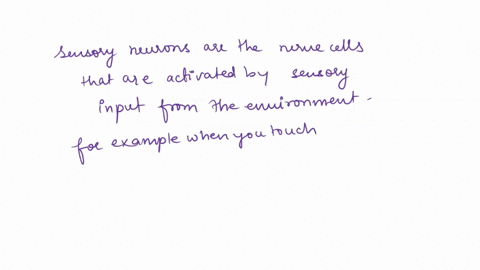 sensory neurons are the nerve cells
that are activated by sensory
input from the environment.
for example when you touch